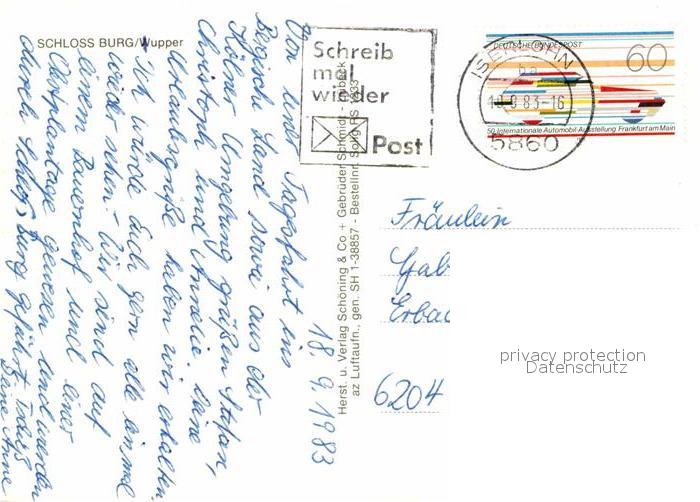 SCHLOSS BURG/Wupper
Von einer Tagesfahrt ins
Bergische Land sowie aus der
Kölner Umgebung grüßen Stefan,
Christoph und Annelie. Deine
Urlaubsgrüße haben wir erhalten.
Wir würde dich gern alle einmal
wiedersehen. Wir sind auf
einem Bauernhof und einer
Obstplantage gewesen und werden
durch Schloß Burg geführt.
Deine Anne
18.9.1983
Herst. u. Verlag Schöning & Co + Gebrüder Schmidt - Lübeck
az Luftaufn., gen. SH 1-38857 - Bestellnr. Solig RS
Schreib
mal
wieder
Post
ISERLOHN
18.9.83-16
5860
DEUTSCHE BUNDESPOST
60
50. Internationale Automobil-Ausstellung Frankfurt am Main
Fräulein
Gab
Erbac
6204
privacy protection
Datenschutz